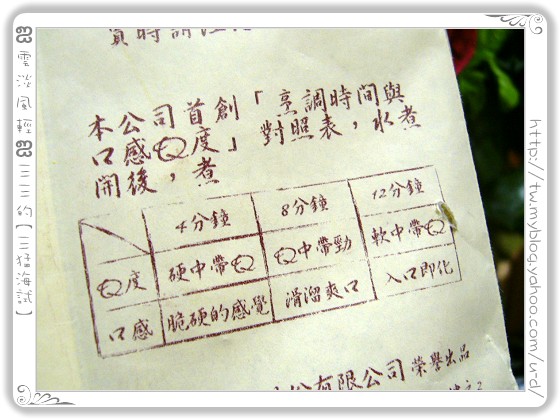 本公司首創「烹調時間與
口感Q度」對照表，水煮
開後，煮
4分鐘 8分鐘 12分鐘
Q度 硬中帶Q Q中帶勁 軟中帶Q
口感 脆硬的感覺 滑溜爽口 入口即化
有限公司 榮譽出品
雲淡風輕 三三的【三猛海試】
http://tw.myblog.yahoo.com/u-d/